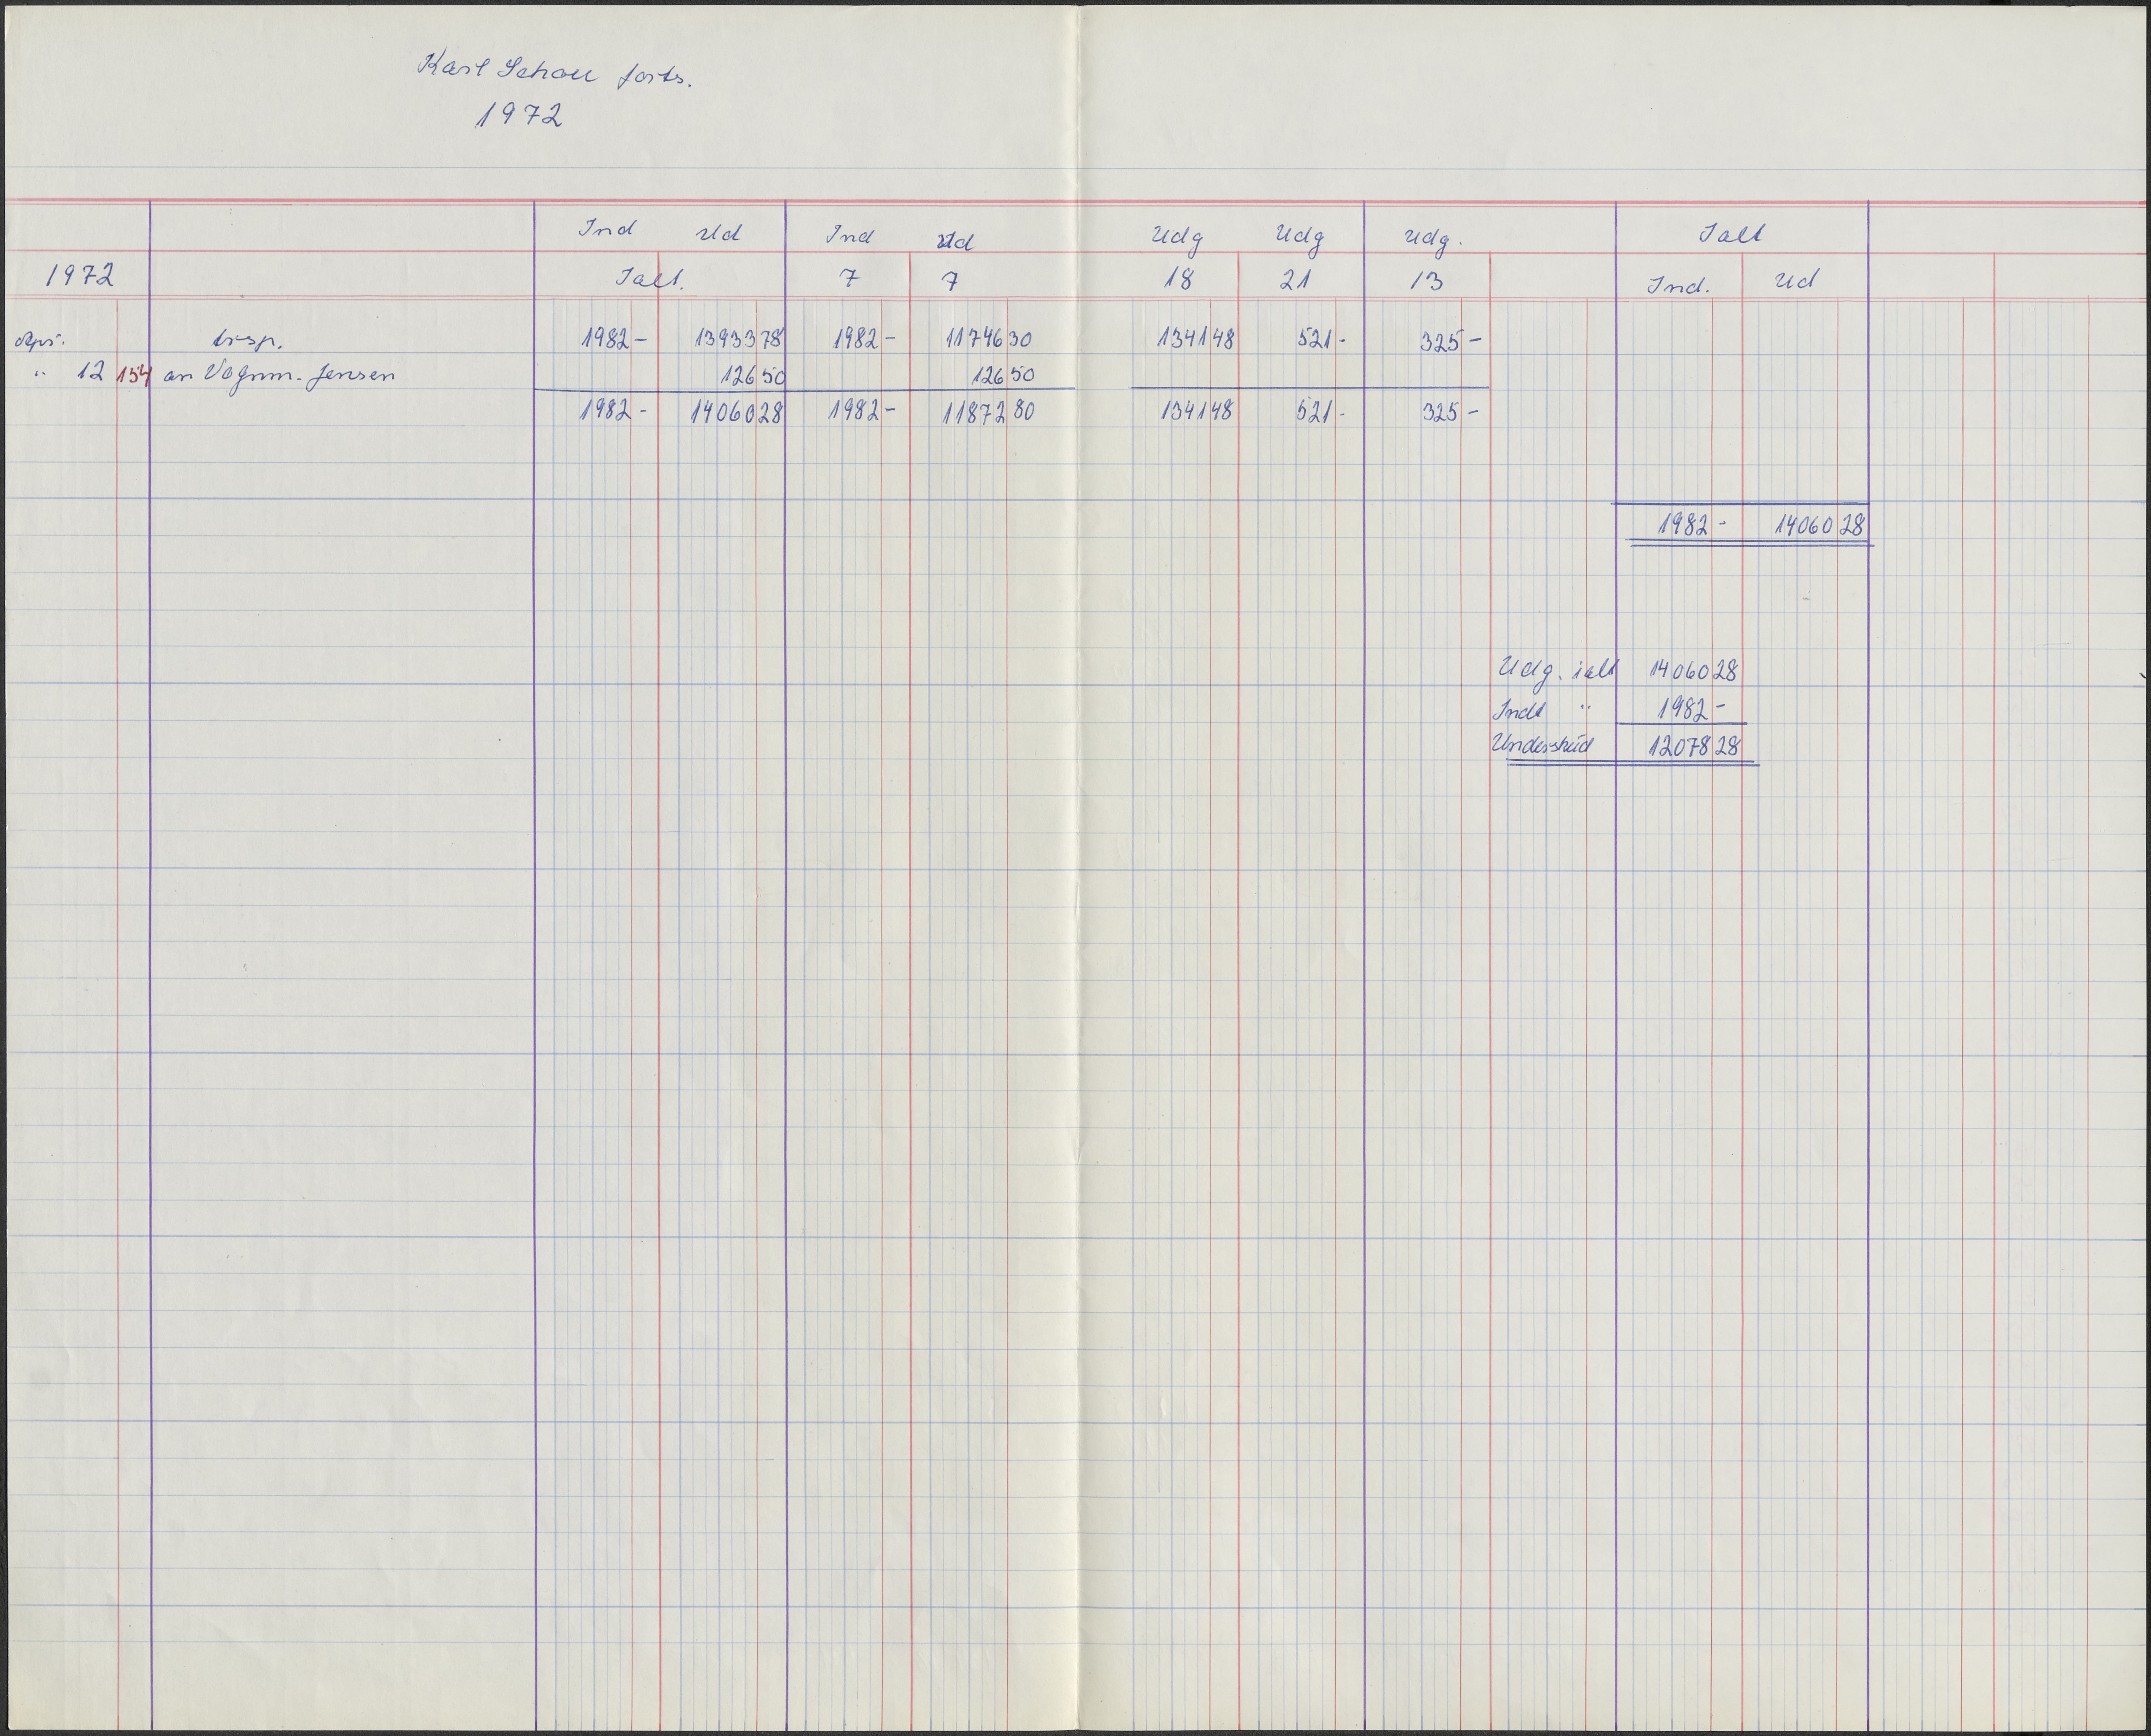 Karl Schou forts.
1972
Ind Ud Ind Ud Udg Udg Udg. Ialt
1972 Ialt. 7 7 18 21 13 Ind. Ud
Apr. trsp. 1982- 13933 78 1982- 11746 30 1341 48 521- 325-
" 12 154 an Vognm. Jensen 126 50 126 50
1982- 14060 28 1982- 11872 80 1341 48 521- 325-
1982- 14060 28
Udg. ialt 14060 28
Indt " 1982-
Underskud 12078 28